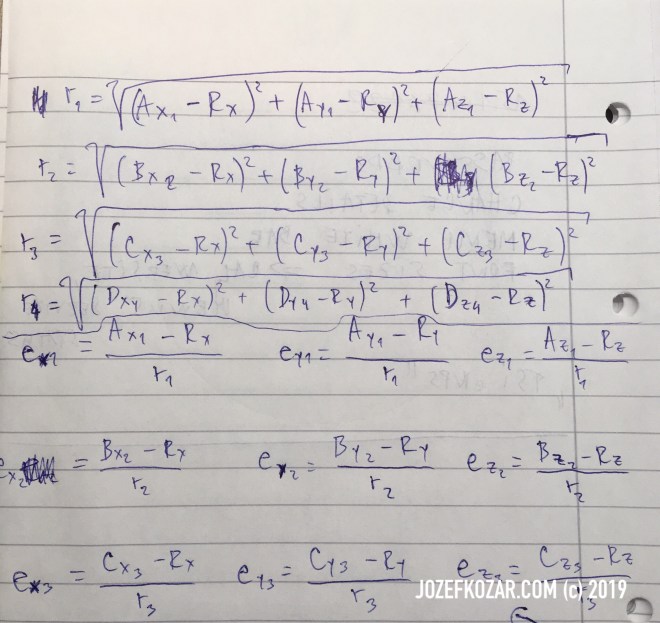 r₁ = √((A_X₁ − R_X)² + (A_Y₁ − R_Y)² + (A_Z₁ − R_Z)²)
r₂ = √((B_X₂ − R_X)² + (B_Y₂ − R_Y)² + (B_Z₂ − R_Z)²)
r₃ = √((C_X₃ − R_X)² + (C_Y₃ − R_Y)² + (C_Z₃ − R_Z)²)
r₄ = √((D_X₄ − R_X)² + (D_Y₄ − R_Y)² + (D_Z₄ − R_Z)²)
e_X₁ = (A_X₁ − R_X)/r₁ e_Y₁ = (A_Y₁ − R_Y)/r₁ e_Z₁ = (A_Z₁ − R_Z)/r₁
e_X₂ = (B_X₂ − R_X)/r₂ e_Y₂ = (B_Y₂ − R_Y)/r₂ e_Z₂ = (B_Z₂ − R_Z)/r₂
e_X₃ = (C_X₃ − R_X)/r₃ e_Y₃ = (C_Y₃ − R_Y)/r₃ e_Z₃ = (C_Z₃ − R_Z)/r₃
JOZEFKOZAR.COM (c) 2019